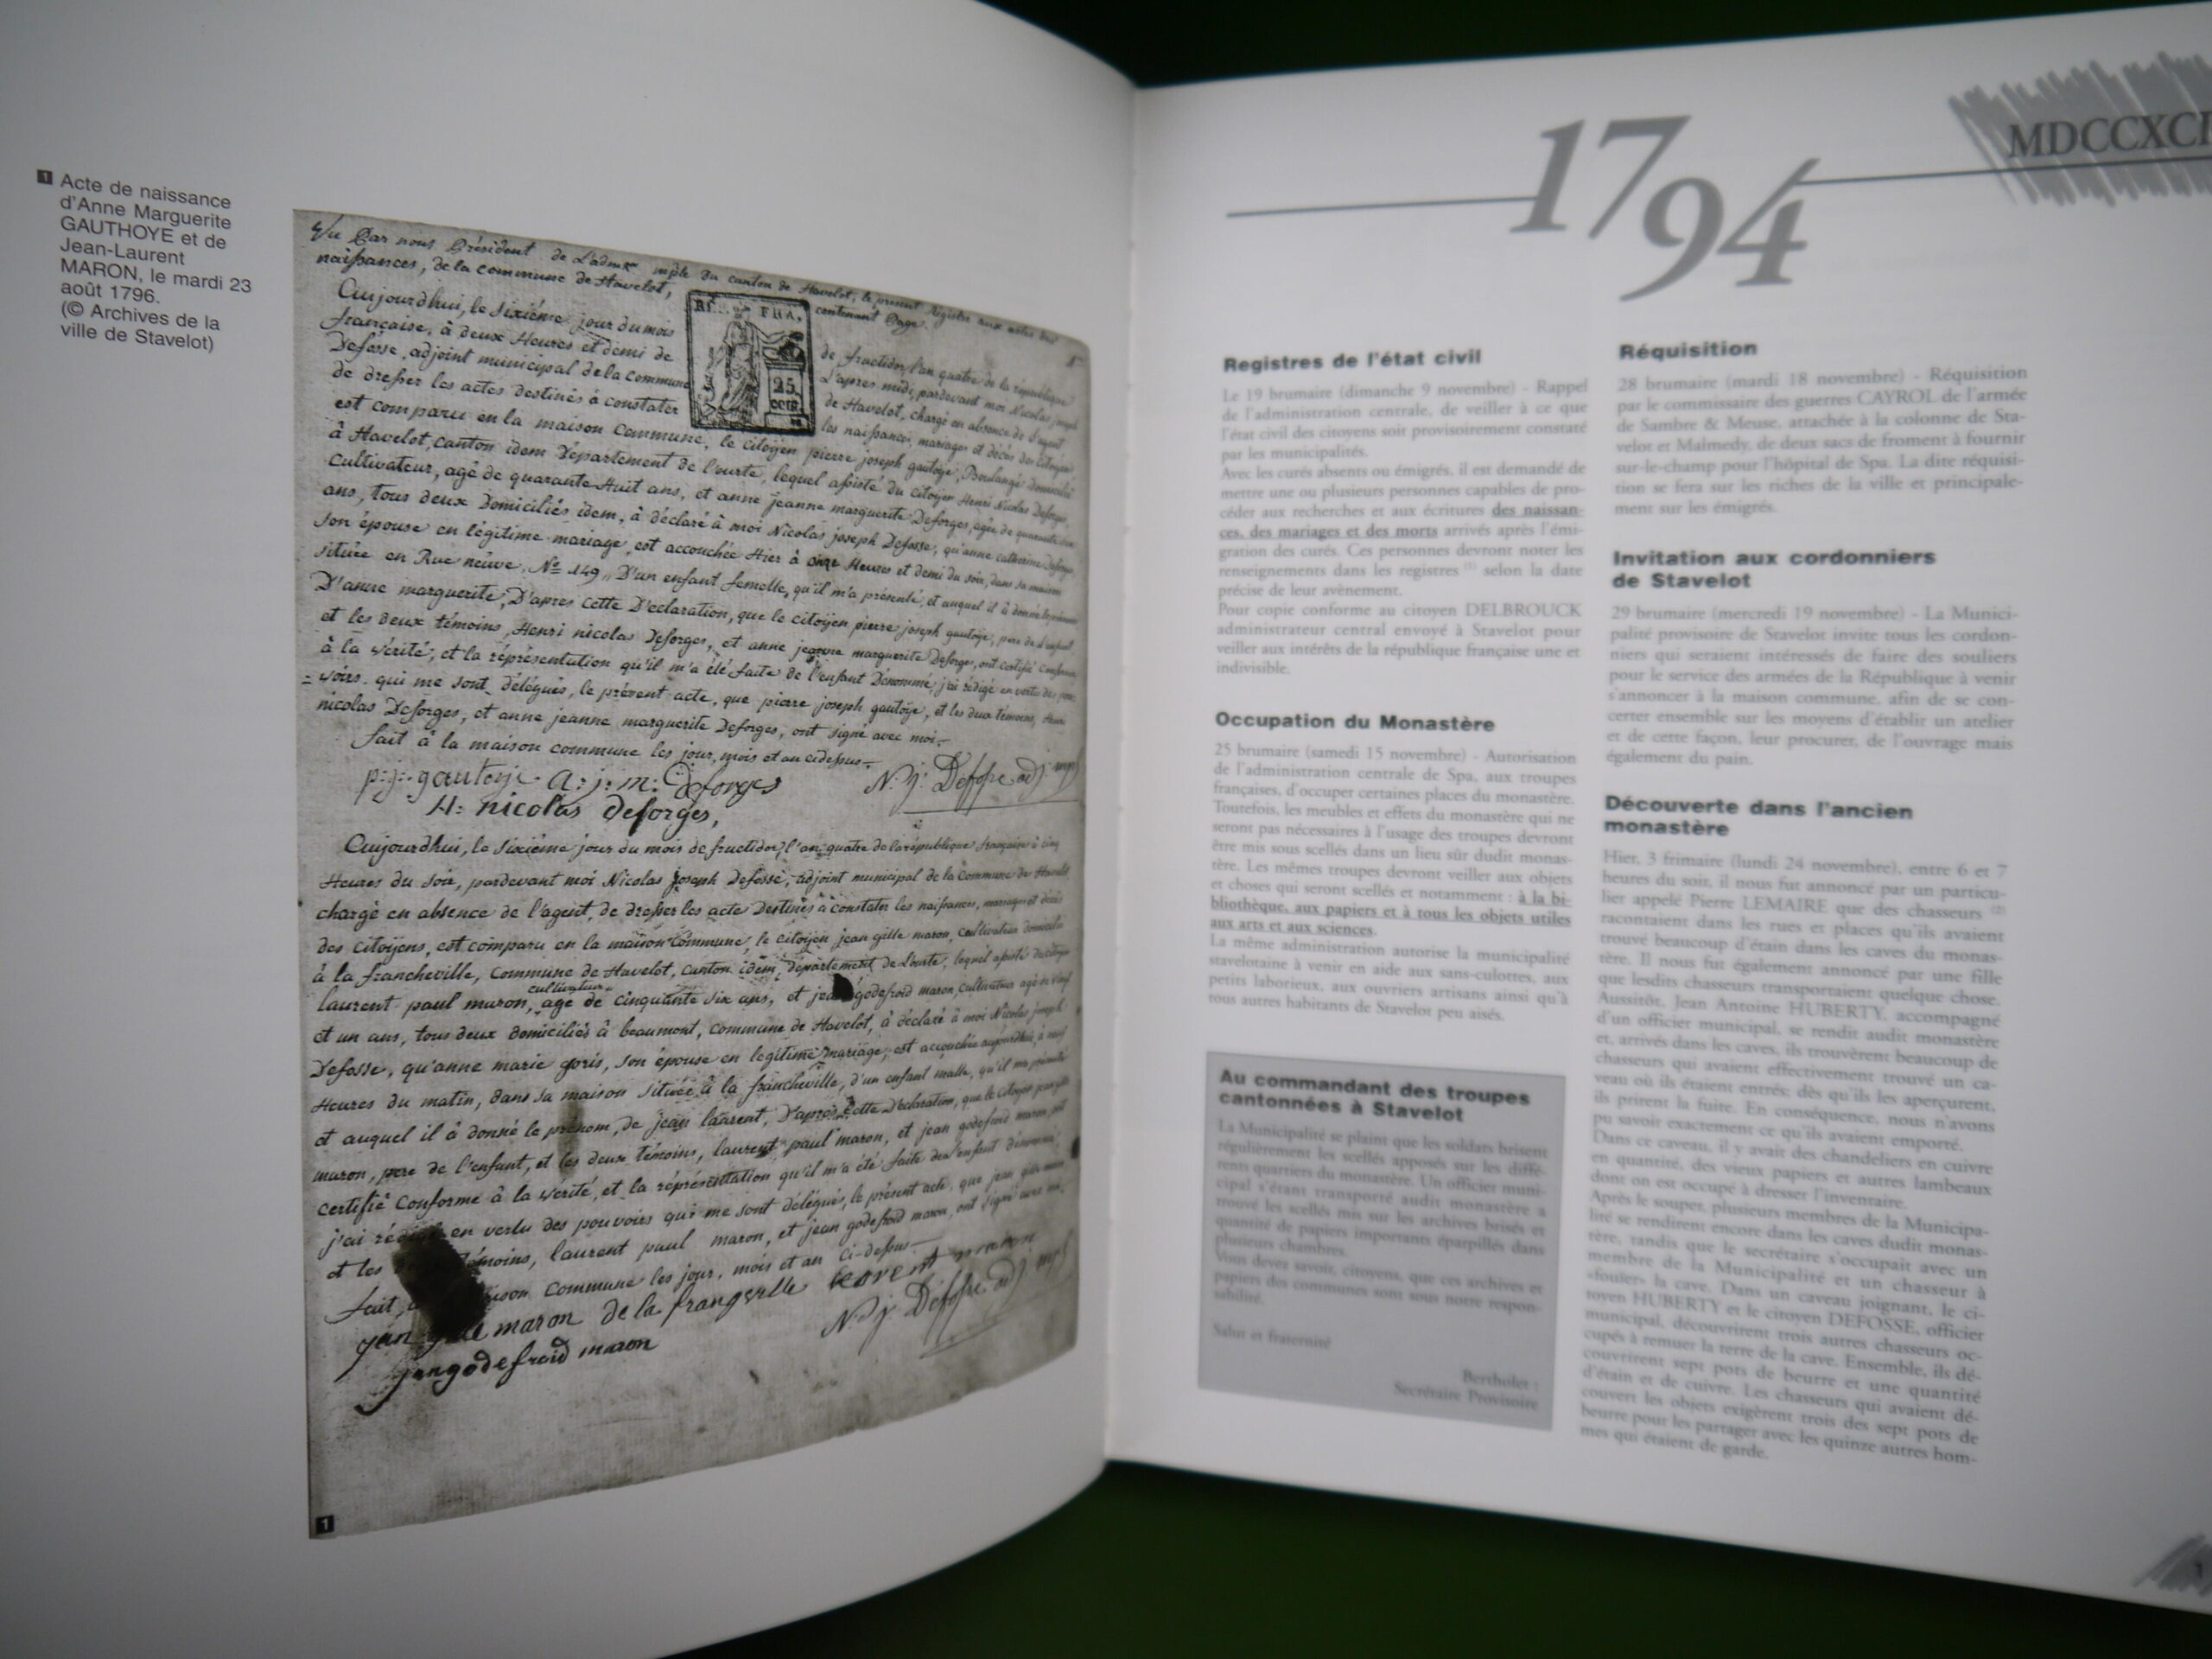 1 Acte de naissance
d'Anne Marguerite
GAUTHOYE et de
Jean-Laurent
MARON, le mardi 23
août 1796.
(© Archives de la
ville de Stavelot)
Vu Par nous Président de L'adm mple du canton de Stavelot, le present Régistre aux actes des
naissances, de la commune de Stavelot, contenant Page.
RE... FRA.
25
cent.
Aujourdhui, le sixiéme jour du mois de fructidor l'an quatre de la république
française, à deux Heures et demi de L'apres midi, pardevant moi Nicolas joseph
Defosse, adjoint municipal de la commune de Stavelot, chargé en absence de L'agent
de dresser les actes destinés à constater les naissances, mariages et décés des citoyens
est comparu en la maison commune, le citoyen pierre joseph gautoye, Boulangé domicilié
à Stavelot, canton idem Département de l'ourte, lequel assisté du citoyen Henri Nicolas Deforges,
cultivateur, agé de quarante Huit ans, et anne jeanne marguerite Deforges, agée de quarante
ans, tous deux Domiciliés idem, à déclaré à moi Nicolas joseph Defosse, qu'anne catherine Deforges
son épouse en légitime mariage, est accouchée Hier à onze Heures et demi du soir, dans sa maison
située en Rue neuve, No 149, D'un enfant femelle, qu'il m'a présenté, et auquel il à donné le prénom
D'anne marguerite, D'apres cette Declaration, que le citoyen pierre joseph gautoye, pere de L'enfant
et les deux témoins, Henri nicolas Deforges, et anne jeanne marguerite Deforge, ont certifié conforme
à la vérité, et la réprésentation qu'il m'a été faite de l'enfant Dénommé, j'ai rédigé en vertu des pou=
=voirs qui me sont délégués, le présent acte, que pierre joseph gautoye, et les deux temoins, Henri
nicolas Deforges, et anne jeanne marguerite Deforges, ont signé avec moi.
fait à la maison commune les jour, mois et an cidessus
p:j: gautoye A: j: m: Deforges N. J. Defosse adj mpl
H: nicolas deforges,
Aujourdhui, le sixiéme jour du mois de fructidor, l'an quatre de la république française à cinq
Heures du soir, pardevant moi Nicolas joseph Defosse, adjoint municipal de la Commune de Stavelot
chargé en absence de l'agent, de dresser les acte Destinés à constater les naissances, mariages et décés
des citoyens, est comparu en la maison commune, le citoyen jean gille maron, cultivateur domicilié
à la francheville, commune de Stavelot, canton idem, département de L'ourte, lequel assisté du citoyen
cultivateur
laurent paul maron, agé de cinquante six ans, et jean godefroid maron, cultivateur agé de vingt
et un ans, tous deux domiciliés à beaumont, commune de Stavelot, à déclaré à moi Nicolas joseph
Defosse, qu'anne marie goris, son épouse en legitime mariage, est accouchée aujourdhui à neuf
Heures du matin, dans sa maison située à la francheville, d'un enfant malle, qu'il ma présenté
et auquel il à donné le prénom, de jean laurent, D'apres cette Déclaration, que le citoyen jean gille
maron, pere de l'enfant, et les deux témoins, laurent paul maron, et jean godefroid maron, ont
certifié conforme à la vérité, et la réprésentation qu'il m'a été faite de l'enfant dénommé
j'ai rédigé en vertu des pouvoirs qui me sont délégués, le présent acte, que jean gille maron
et les témoins, laurent paul maron, et jean godefroid maron, ont signé avec moi
fait, maison commune les jour, mois et an ci-dessus
jan gille maron de la frangeville lorent maron
jangodefroid maron N. J. Defosse adj mpl
1
1794
MDCCXCI
Registres de l'état civil
Le 19 brumaire (dimanche 9 novembre) - Rappel
de l'administration centrale, de veiller à ce que
l'état civil des citoyens soit provisoirement constaté
par les municipalités.
Avec les curés absents ou émigrés, il est demandé de
mettre une ou plusieurs personnes capables de pro-
céder aux recherches et aux écritures des naissan-
ces, des mariages et des morts arrivés après l'émi-
gration des curés. Ces personnes devront noter les
renseignements dans les registres (1) selon la date
précise de leur avènement.
Pour copie conforme au citoyen DELBROUCK
administrateur central envoyé à Stavelot pour
veiller aux intérêts de la république française une et
indivisible.
Occupation du Monastère
25 brumaire (samedi 15 novembre) - Autorisation
de l'administration centrale de Spa, aux troupes
françaises, d'occuper certaines places du monastère.
Toutefois, les meubles et effets du monastère qui ne
seront pas nécessaires à l'usage des troupes devront
être mis sous scellés dans un lieu sûr dudit monas-
tère. Les mêmes troupes devront veiller aux objets
et choses qui seront scellés et notamment : à la bi-
bliothèque, aux papiers et à tous les objets utiles
aux arts et aux sciences.
La même administration autorise la municipalité
stavelotaine à venir en aide aux sans-culottes, aux
petits laborieux, aux ouvriers artisans ainsi qu'à
tous autres habitants de Stavelot peu aisés.
Au commandant des troupes
cantonnées à Stavelot
La Municipalité se plaint que les soldats brisent
régulièrement les scellés apposés sur les diffé-
rents quartiers du monastère. Un officier muni-
cipal s'étant transporté audit monastère a
trouvé les scellés mis sur les archives brisés et
quantité de papiers importants éparpillés dans
plusieurs chambres.
Vous devez savoir, citoyens, que ces archives et
papiers des communes sont sous notre respon-
sabilité.
Salut et fraternité
Bertholet :
Secrétaire Provisoire
Réquisition
28 brumaire (mardi 18 novembre) - Réquisition
par le commissaire des guerres CAYROL de l'armée
de Sambre & Meuse, attachée à la colonne de Sta-
velot et Malmedy, de deux sacs de froment à fournir
sur-le-champ pour l'hôpital de Spa. La dite réquisi-
tion se fera sur les riches de la ville et principale-
ment sur les émigrés.
Invitation aux cordonniers
de Stavelot
29 brumaire (mercredi 19 novembre) - La Munici-
palité provisoire de Stavelot invite tous les cordon-
niers qui seraient intéressés de faire des souliers
pour le service des armées de la République à venir
s'annoncer à la maison commune, afin de se con-
certer ensemble sur les moyens d'établir un atelier
et de cette façon, leur procurer, de l'ouvrage mais
également du pain.
Découverte dans l'ancien
monastère
Hier, 3 frimaire (lundi 24 novembre), entre 6 et 7
heures du soir, il nous fut annoncé par un particu-
lier appelé Pierre LEMAIRE que des chasseurs (2)
racontaient dans les rues et places qu'ils avaient
trouvé beaucoup d'étain dans les caves du monas-
tère. Il nous fut également annoncé par une fille
que lesdits chasseurs transportaient quelque chose.
Aussitôt, Jean Antoine HUBERTY, accompagné
d'un officier municipal, se rendit audit monastère
et, arrivés dans les caves, ils trouvèrent beaucoup de
chasseurs qui avaient effectivement trouvé un ca-
veau où ils étaient entrés; dès qu'ils les aperçurent,
ils prirent la fuite. En conséquence, nous n'avons
pu savoir exactement ce qu'ils avaient emporté.
Dans ce caveau, il y avait des chandeliers en cuivre
en quantité, des vieux papiers et autres lambeaux
dont on est occupé à dresser l'inventaire.
Après le souper, plusieurs membres de la Municipa-
lité se rendirent encore dans les caves dudit monas-
tère, tandis que le secrétaire s'occupait avec un
membre de la Municipalité et un chasseur à
«fouiller» la cave. Dans un caveau joignant, le ci-
toyen HUBERTY et le citoyen DEFOSSE, officier
municipal, découvrirent trois autres chasseurs oc-
cupés à remuer la terre de la cave. Ensemble, ils dé-
couvrirent sept pots de beurre et une quantité
d'étain et de cuivre. Les chasseurs qui avaient dé-
couvert les objets exigèrent trois des sept pots de
beurre pour les partager avec les quinze autres hom-
mes qui étaient de garde.